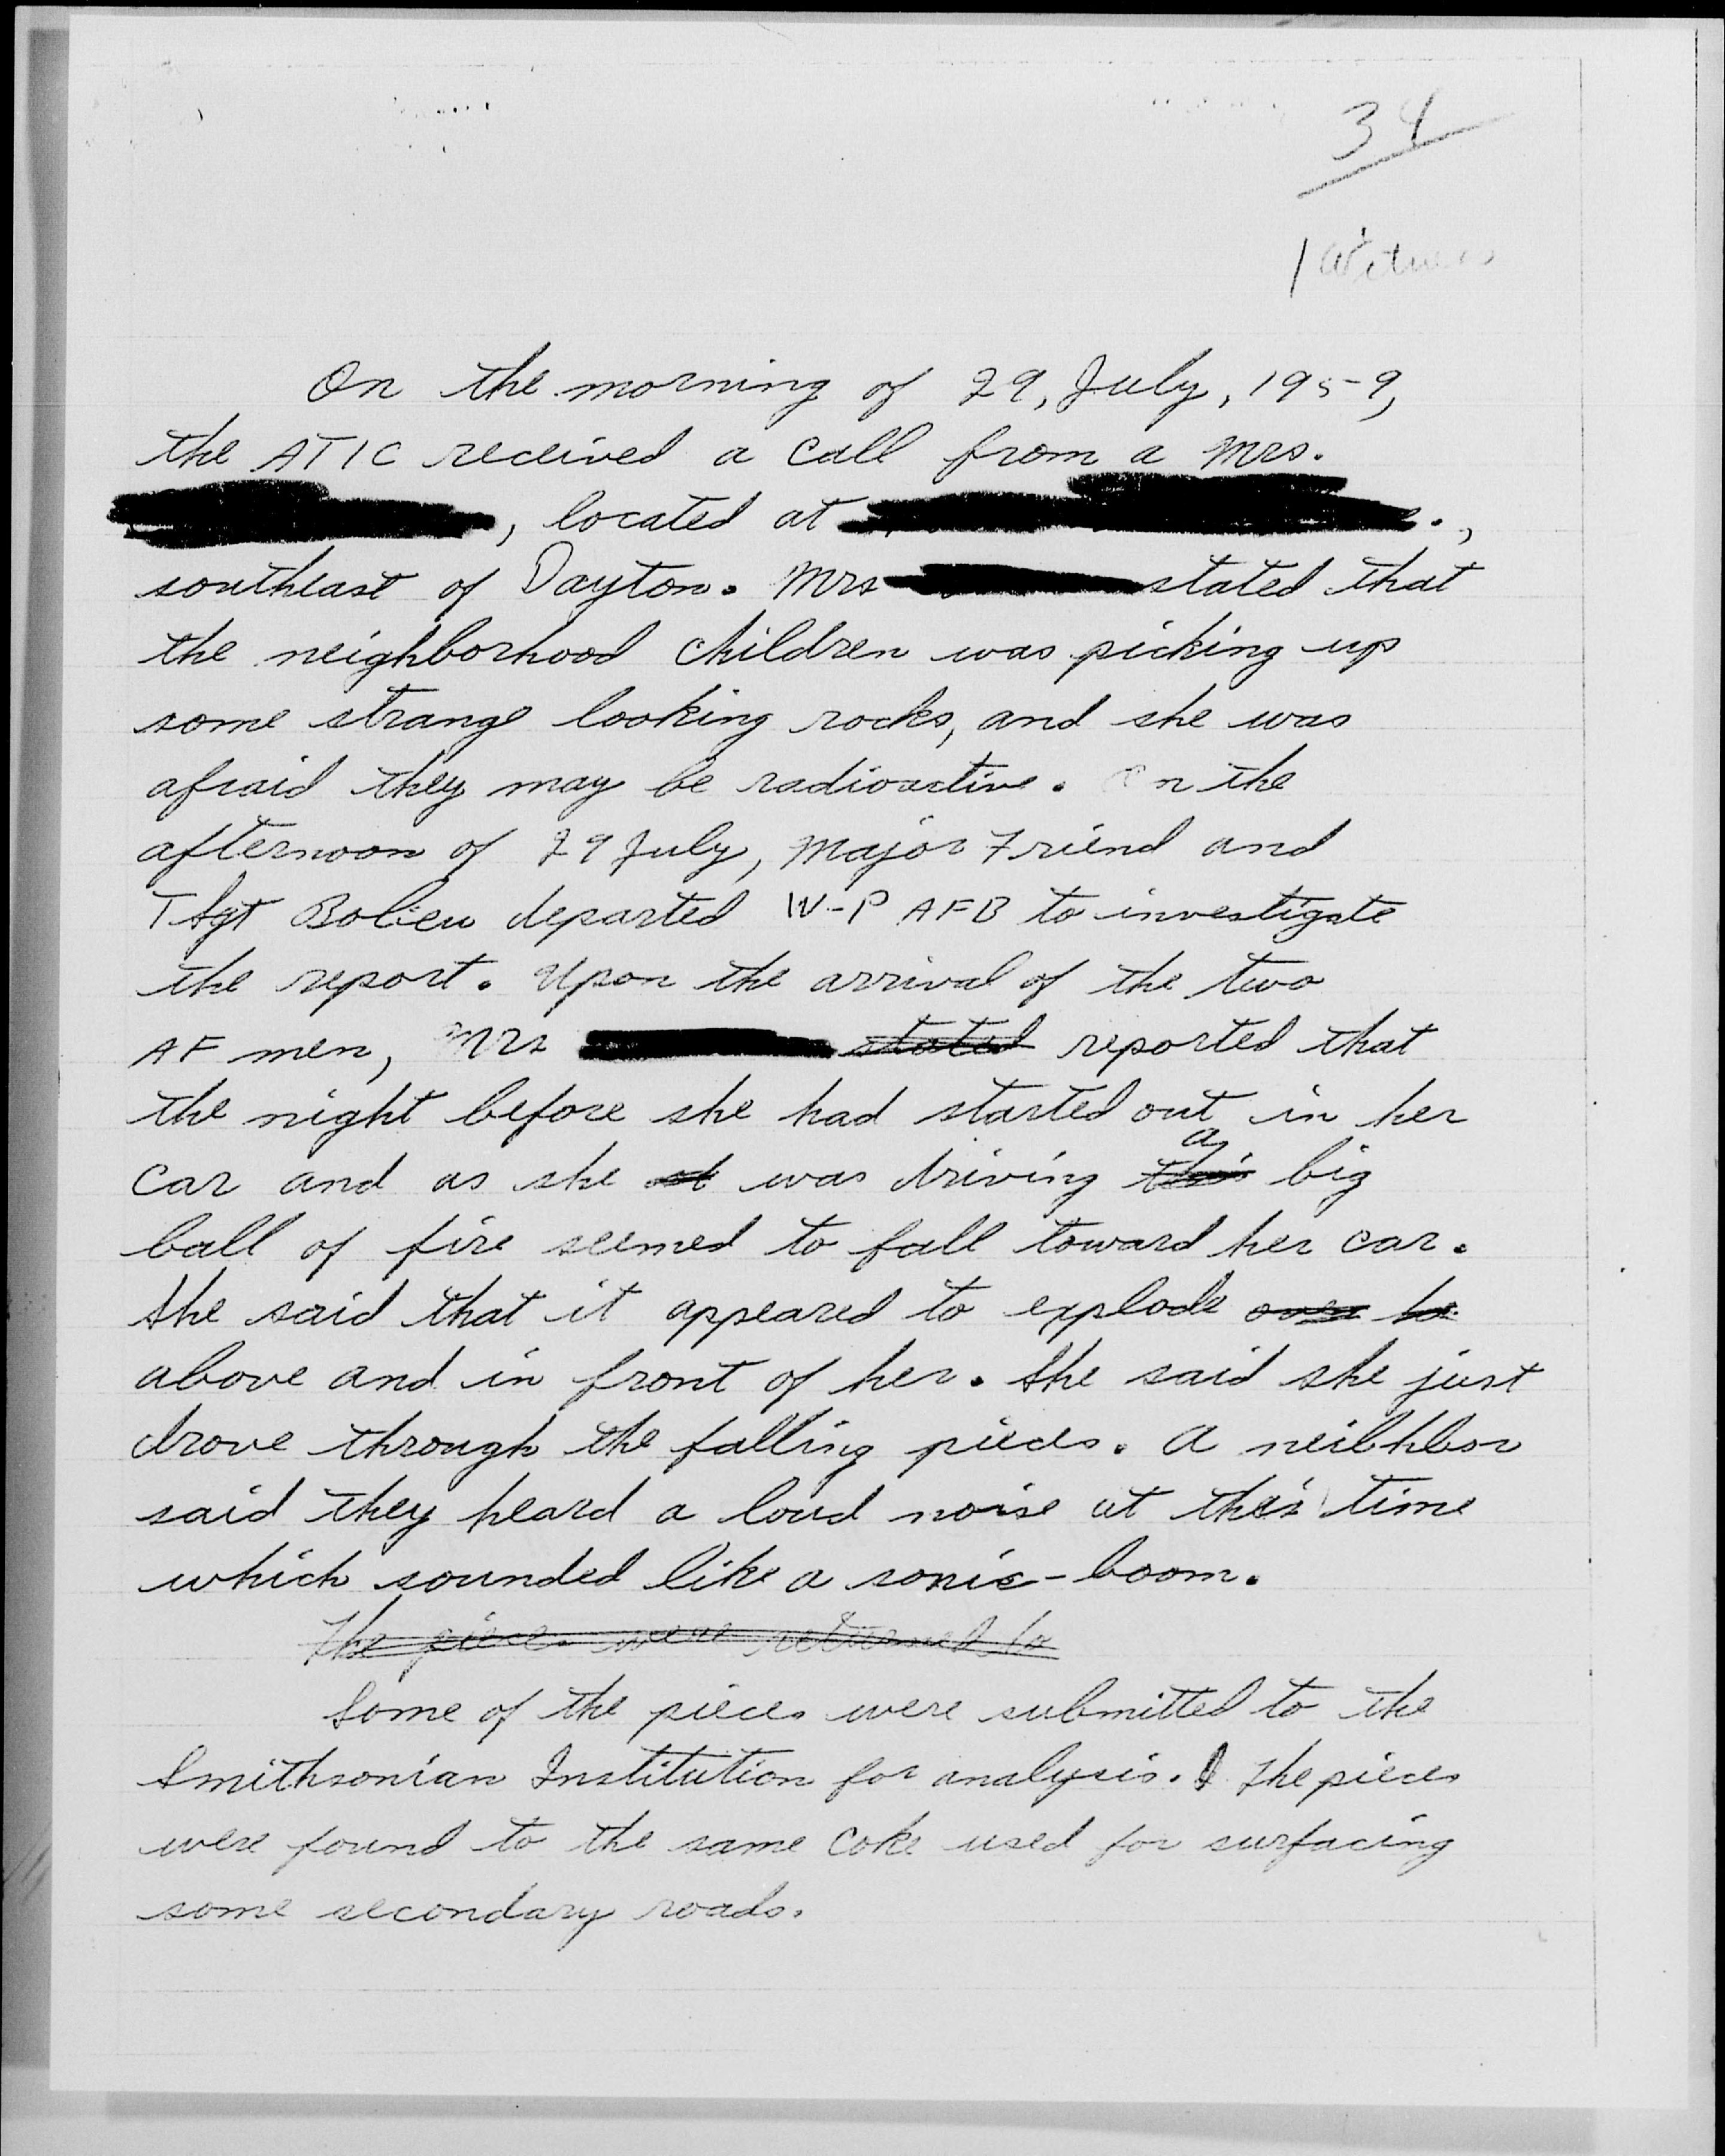 34
1 Witness
On the morning of 29, July, 1959,
the ATIC received a call from a Mrs.
, located at .,
southeast of Dayton. Mrs stated that
the neighborhood children was picking up
some strange looking rocks, and she was
afraid they may be radioactive. On the
afternoon of 29 July, Major Friend and
TSgt departed W-P AFB to investigate
the report. Upon the arrival of the two
AF men, Mrs stated reported that
the night before she had started out in her
a
car and as she st was driving this big
ball of fire seemed to fall toward her car.
She said that it appeared to explode over he
above and in front of her. She said she just
drove through the falling pieces. A neibhbor
said they heard a loud noise at this time
which sounded like a sonic-boom.
The pieces were returned to
Some of the pieces were submitted to the
Smithsonian Institution for analysis. The pieces
were found to the same coke used for surfacing
some secondary roads.